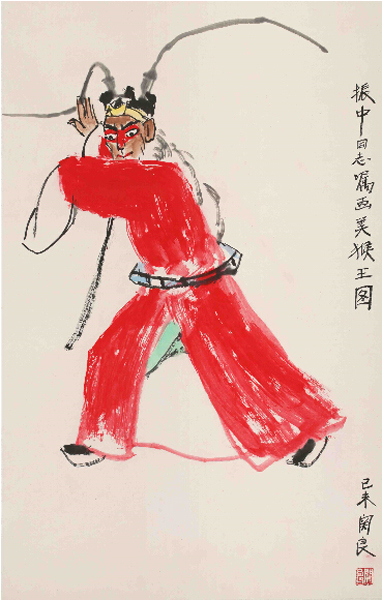 振中同志嘱画美猴王图
己未关良